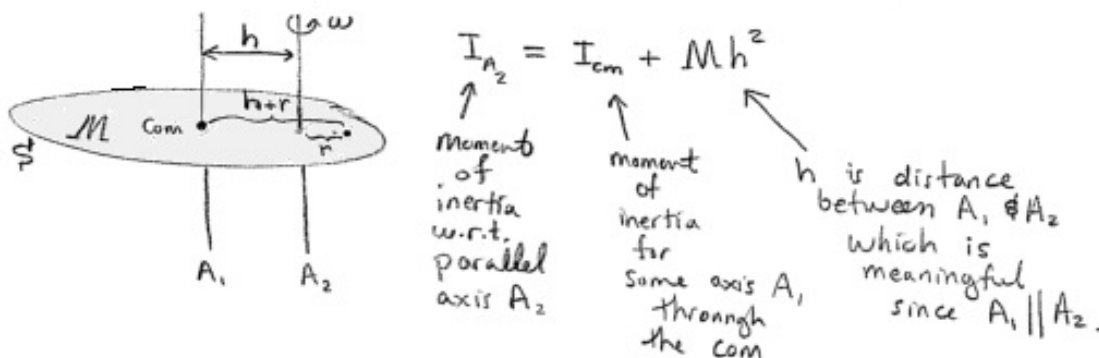 ω
h
I_A₂ = I_cm + Mh²
h+r
M
Com
r
A₁
A₂
moment
of
inertia
w.r.t.
parallel
axis A₂
moment
of
inertia
for
some axis A₁
through
the com
h is distance
between A₁ & A₂
which is
meaningful
since A₁ || A₂.